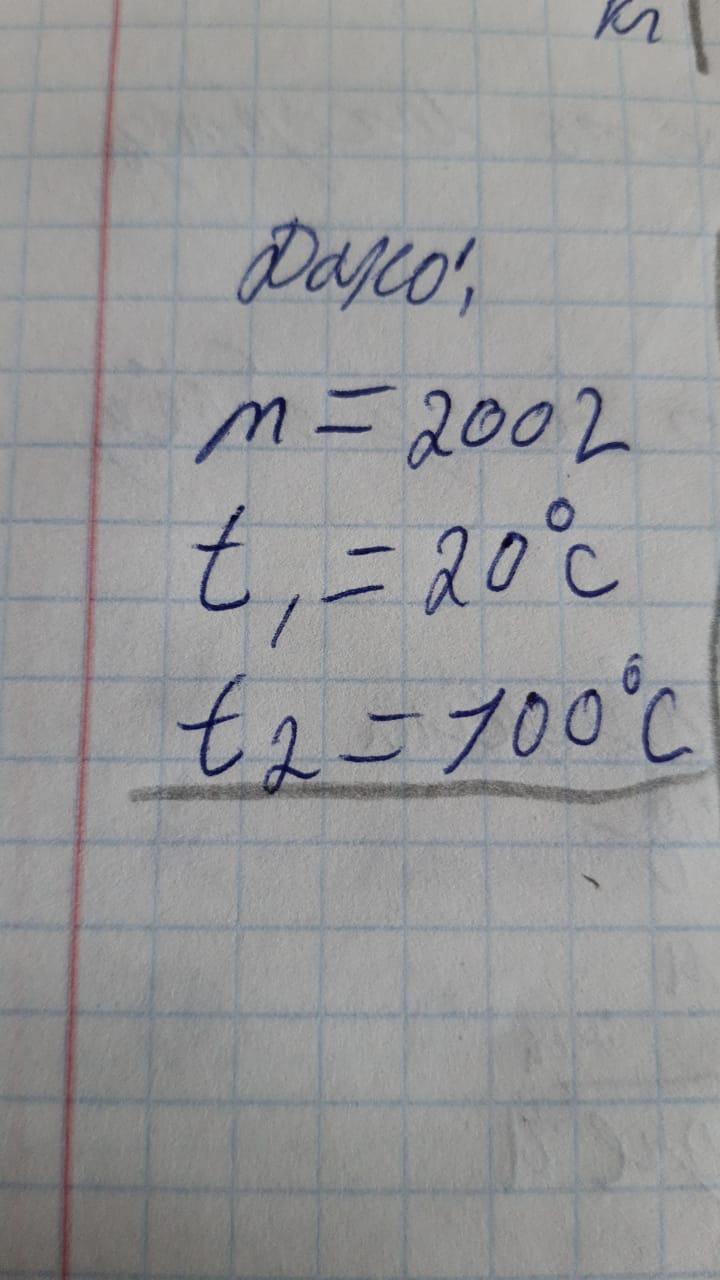 кг
Дано:
m = 200 г
t₁ = 20°C
t₂ = 100°C